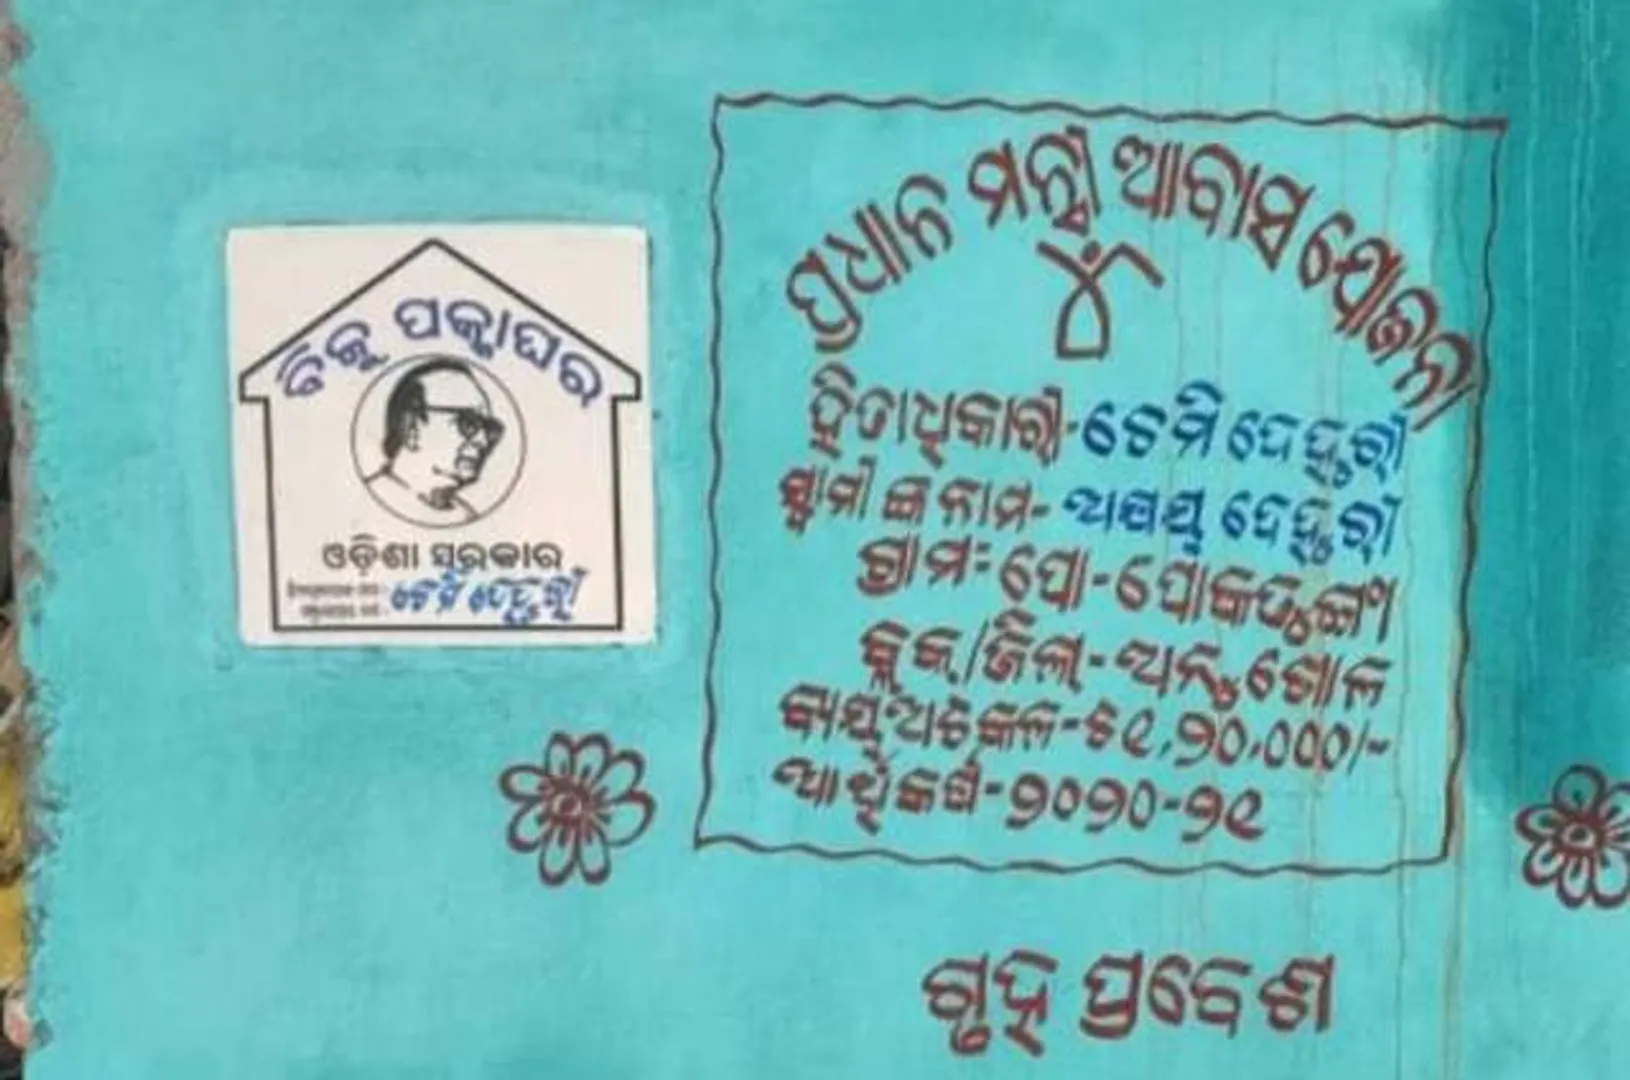 ବିଜୁ ପକ୍କାଘର
ଓଡ଼ିଶା ସରକାର
ଟେମି ଦେହୁରୀ
ପ୍ରଧାନ ମନ୍ତ୍ରୀ ଆବାସ ଯୋଜନା
ହିତାଧିକାରୀ-ଟେମି ଦେହୁରୀ
ସ୍ଵାମୀଙ୍କ ନାମ- ଅକ୍ଷୟ ଦେହୁରୀ
ଗ୍ରାମ: ପୋ-
ବ୍ଲକ/ଜିଲା-ଅନୁଗୋଳ
ବ୍ୟୟଅଟକଳ-ଟ୧,୨୦,୦୦୦/-
ଆର୍ଥିକବର୍ଷ-୨୦୨୦-୨୧
ଗୃହ ପ୍ରବେଶ